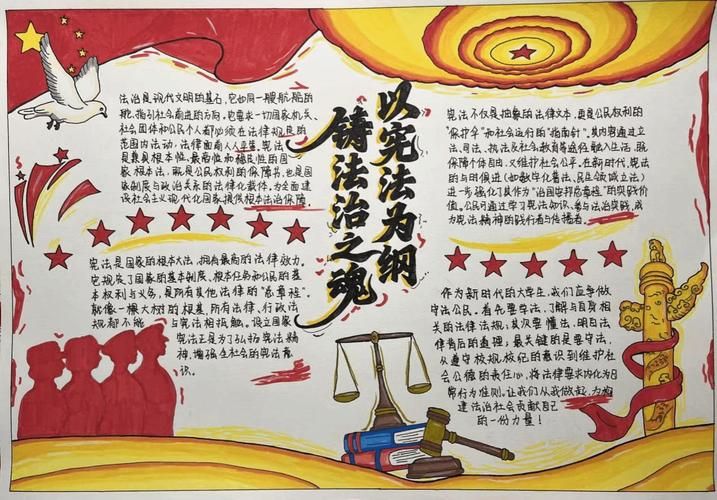 以宪法为纲
铸法治之魂
法治是现代文明的基石，它如同一艘航船的
舵，指引社会前进的方向。它要求一切国家机关、
社会团体和公民个人都必须在法律规定的
范围内活动，法律面前人人平等。宪法
是兼具根本性、最高性和稳定性的国
家根本法，既是公民权利的保障书，也是国
家制度与政治关系的法律化载体，为全面建
设社会主义现代化国家提供根本法治保障。
宪法是国家的根本大法，拥有最高的法律效力。
它规定了国家的基本制度、根本任务和公民的基
本权利与义务，是所有其他法律的“总章程”。
就像一棵大树的根基，所有法律、行政法
规都不能与宪法相抵触。设立国家
宪法正是为了弘扬宪法精
神，增强全社会的宪法意
识。
宪法不仅是抽象的法律文本，更是公民权利的
“保护伞”和社会运行的“指南针”，其内容通过立
法、司法、执法及社会教育等途径融入生活，既
保障个体自由，又维护社会公平。在新时代，宪法
的与时俱进（如数字化普法、民生领域立法）
进一步强化了其作为“治国安邦总章程”的实践价
值。公民可通过学习宪法知识、参与法治实践，成
为宪法精神的践行者与传播者。
作为新时代的大学生，我们应争做
守法公民。首先要学法，了解与自身相
关的法律法规；其次要懂法，明白法
律背后的道理；最关键的是要守法，
从遵守校规校纪的意识到维护社
会公德的责任心，将法律要求内化为日
常行为准则。让我们从我做起，为构
建法治社会贡献自己
的一份力量！